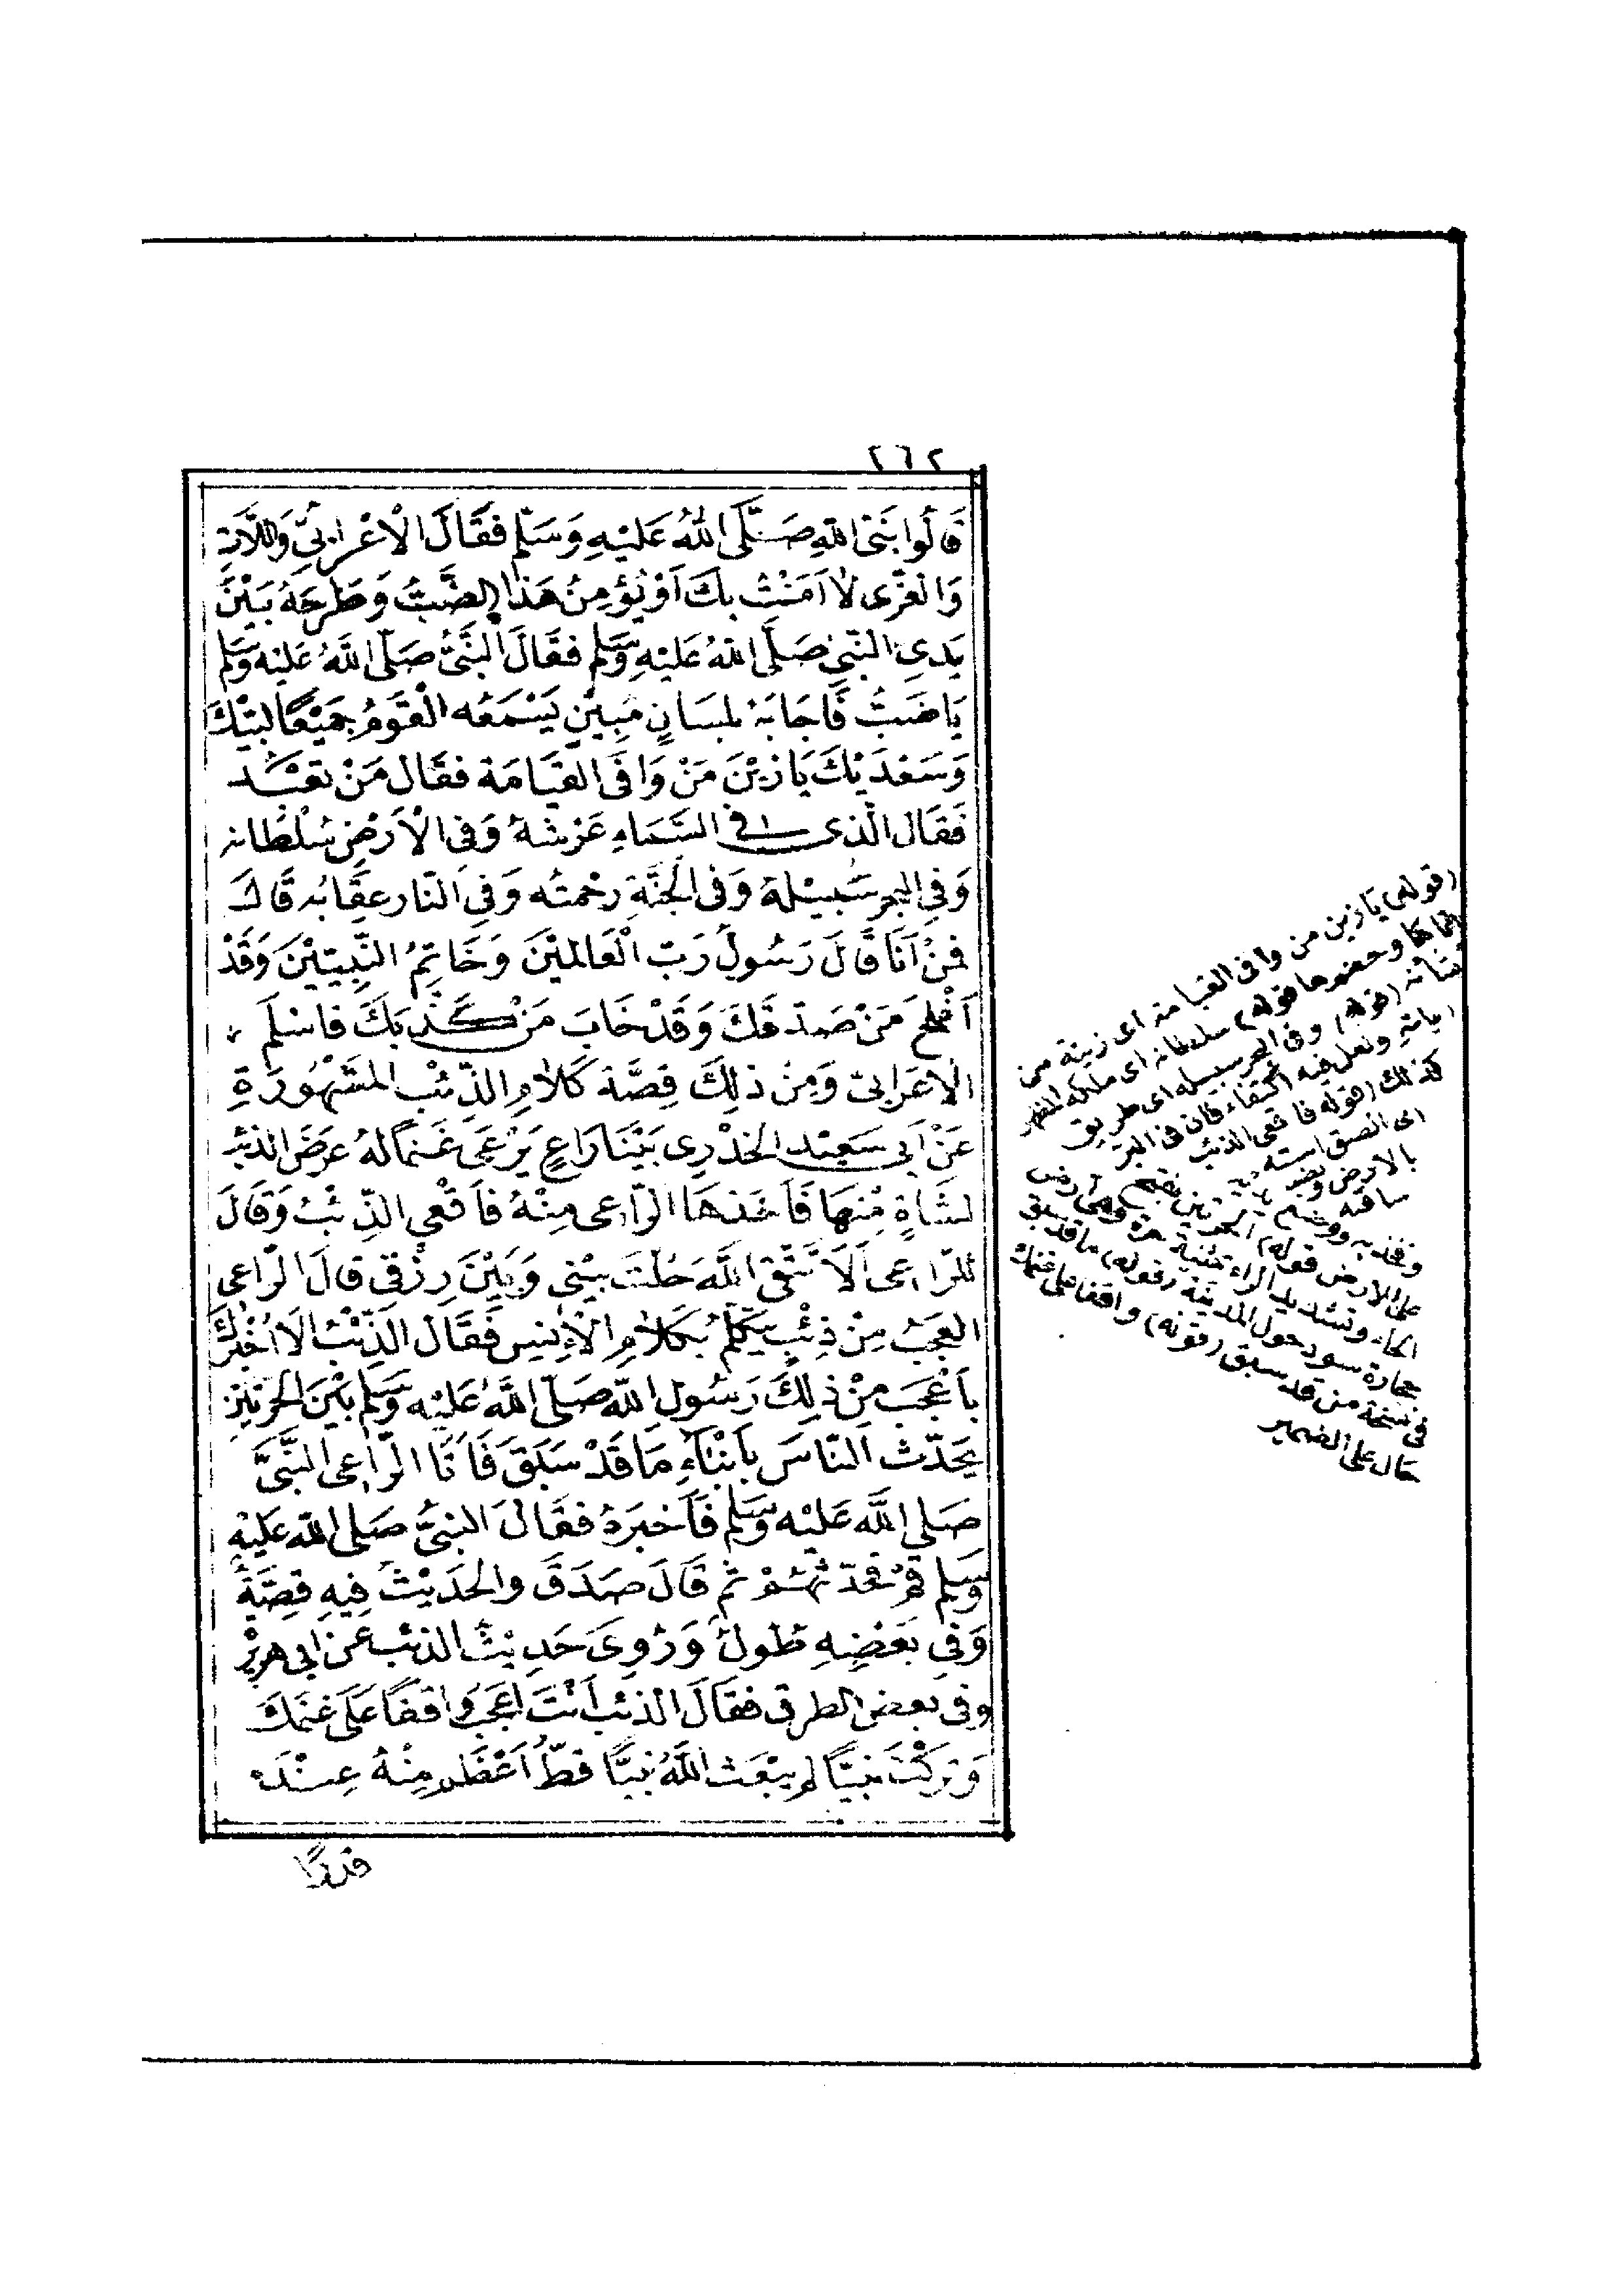 ٢٦٢
قَالُوا نَبِيُّ اللهِ صَلَّى اللهُ عَلَيْهِ وَسَلَّم فَقَالَ الْاَعْرَابِيُّ وَاللَّاتِ
وَالْعُزَّى لَا اٰمَنْتُ بِكَ اَوْ يُؤْمِنُ هَذَا الضَّبُّ وَطَرَحَهُ بَيْنَ
يَدَىِ النَّبِىِّ صَلَّى اللهُ عَلَيْهِ وَسَلَّم فَقَالَ النَّبِىُّ صَلَّى اللهُ عَلَيْهِ وَسَلَّم
يَا ضَبُّ فَاَجَابَهُ بِلِسَانٍ مُبِيْنٍ يَسْمَعُه الْقَوْمُ جَمِيْعًا لَبَّيْكَ
وَسَعْدَيْكَ يَا زَيْنَ مَنْ وَافَى الْقِيَامَةَ فَقَالَ مَنْ تَعْبُد
فَقَالَ الَّذِى فِى السَّمَاءِ عَرْشُهُ وَفِى الْاَرْضِ سُلْطَانه
وَفِى الْبَحْرِ سَبِيْلُهُ وَفِى الْجَنَّةِ رَحْمَتُه وَفِى النَّارِ عِقَابُه قَالَ
فَمَنْ اَنَا قَالَ رَسُولُ رَبِّ الْعَالَمِيْنَ وَخَاتِمُ النَّبِيِّيْنَ وَقَدْ
اَفْلَحَ مَنْ صَدَّقَكَ وَقَدْ خَابَ مَنْ كَذَّبَكَ فَاسْلَمَ
الْاَعْرَابِىّ وَمِنْ ذَلِكَ قِصَّةُ كَلَامِ الذِّئْبِ الْمَشْهُورَةِ
عَنْ اَبِى سَعِيْد الْخُدْرِى بَيْنَا رَاعٍ يَرْعَى غَنَمًا لَهُ عَرَضَ الذئب
لِشَاةٍ مِنْهَا فَاَخَذَهَا الرَّاعِى مِنْهُ فَاَقْعَى الذِّئْبُ وَقَالَ
لِلرَّاعِى اَلَا تَتَّقِى اللَّهَ حُلْتَ بَيْنِى وَبَيْنَ رِزْقِى قَالَ الرَّاعِى
الْعَجَبُ مِنْ ذِئْبٍ يَتَكَلَّمُ بِكَلَامِ الْاِنِسِ فَقَالَ الذِّئْبُ اَلَا اُخْبِرُكَ
بِاَعْجَبَ مِنْ ذَلِكَ رَسُولُ اللهِ صَلَّى اللَّهُ عَلَيْهِ وَسَلَّم بَيْنَ الْحَرَّتَيْنِ
يُحَدِّثُ النَّاسَ بِاَنْبَاءِ مَا قَدْ سَبَقَ فَاَتَا الرَّاعِى النَّبِىَّ
صَلَّى اللَّهُ عَلَيْهِ وَسَلَّم فَاَخْبَرَهُ فَقَالَ النَّبِىُّ صَلَّى اللهُ عَلَيْهِ
وَسَلَّم قُمْ فَحَدِّثْهُمْ ثُمَّ قَالَ صَدَقَ وَالْحَدِيْثُ فِيهِ قِصَّةٌ
وَفِى بَعْضِهِ طُولٌ وَرُوِىَ حَدِيْثُ الذئب عَنْ اَبِى هُرَيْرَ
وَفِى بعض الطرق فَقَالَ الذئب اَنْتَ اَعْجَبُ وَاقِفًا عَلَى غَنَمِكَ
وَتَرَكْتَ نَبِيًّا لَمْ يَبْعَثِ اللَّهُ نَبِيًّا قَطُّ اَعْظَمَ مِنْهُ عِنْدَه
قدرًا
(قوله) يا زين من وافى القيامة اى زينة من
اتاها وحضرها (قوله) سلطانه اى ملكه المظهر
شانه (قوله) وفى البحر سبيله اى طريق
اياته ولعل فيه اكتفاء فان فى البر
كذلك (قوله فاقعى الذئب
اى الصق استه
بالارض ونصب
ساقيه
وفخذيه ووضع يديه
على الارض قوله) الحرتين بفتح
الحاء وتشديد الراء تثنية حرة وهى ارض
بحجارة سود حول المدينة (قوله) ما قد سبق
فى نسخة من قد سبق (قوله) واقفا على غنمك
حال على الضمير